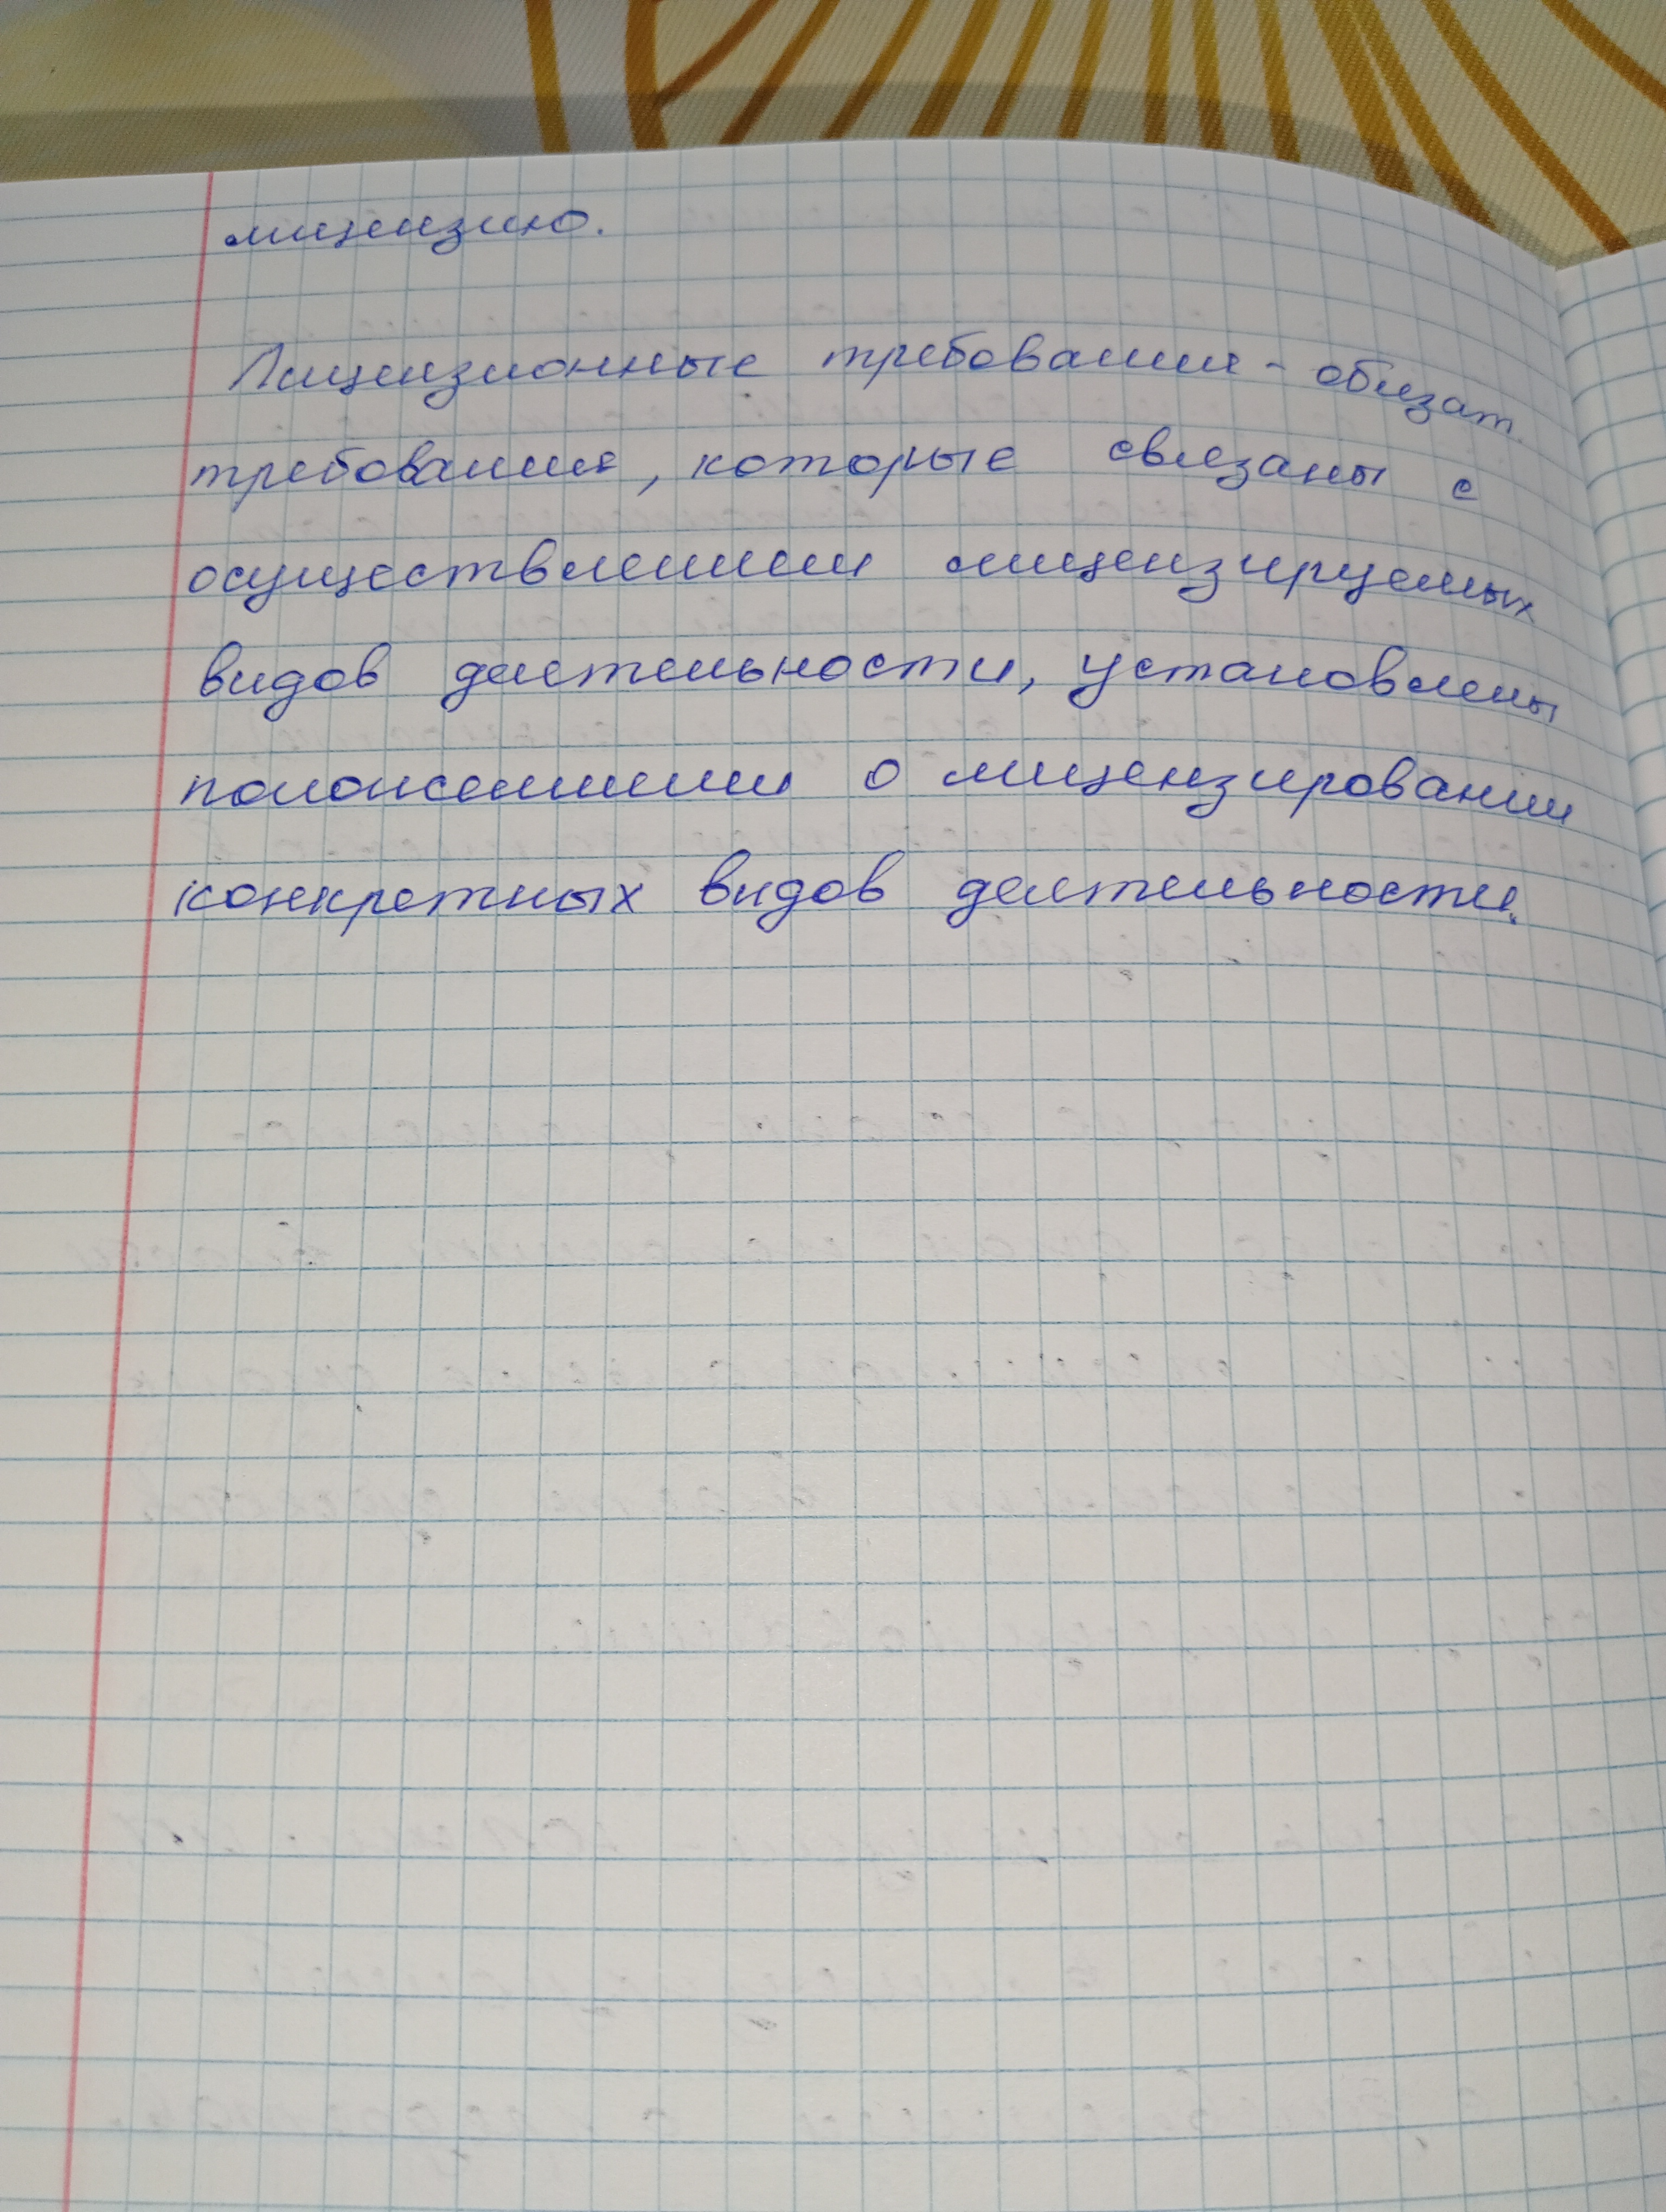 лицензию.
Лицензионные требования - обязат.
требования, которые связаны с
осуществлением лицензируемых
видов деятельности, установлены
положениями о лицензировании
конкретных видов деятельности.